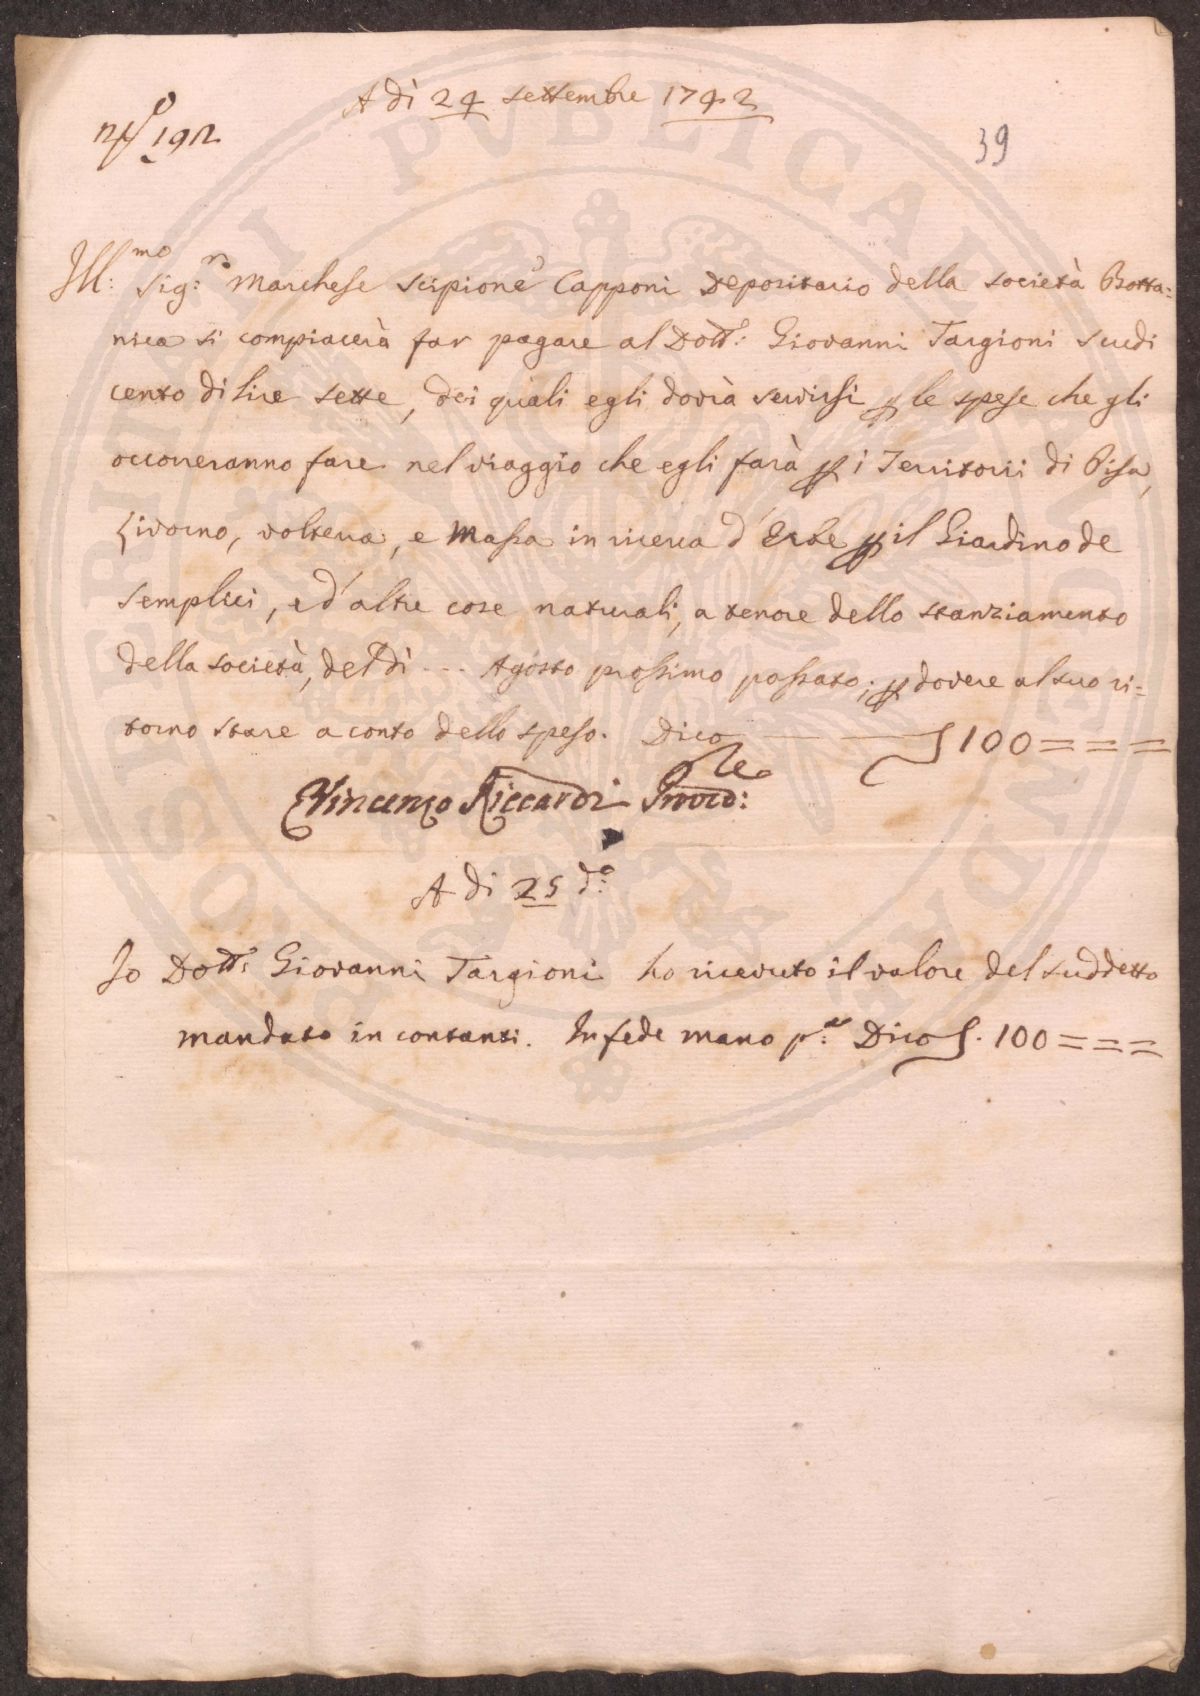 A dì 24 settembre 1742
n.º 192
39
Ill:mo Sig:re Marchese Scipione Capponi Depositario della società Botta=
nica si compiacerà far pagare al Dott: Giovanni Targioni scudi
cento di lire sette, dei quali egli dovrà servirsi p le spese che gli
occorreranno fare nel viaggio che egli farà p i Territorii di Pisa,
Livorno, volterra, e Massa in ricerca d'Erbe p il Giardino de
semplici, e d'altre cose naturali, a tenore dello stanziamento
della società, del dì --- Agosto prossimo passato; p dovere al suo ri=
torno stare a conto dello speso. Dico — — 100 = = =
Vincenzo Riccardi Provd:re
A dì 25 d:o
Io Dott: Giovanni Targioni ho ricevuto il valore del suddetto
mandato in contanti. In fede mano p: Dico . 100 = = =